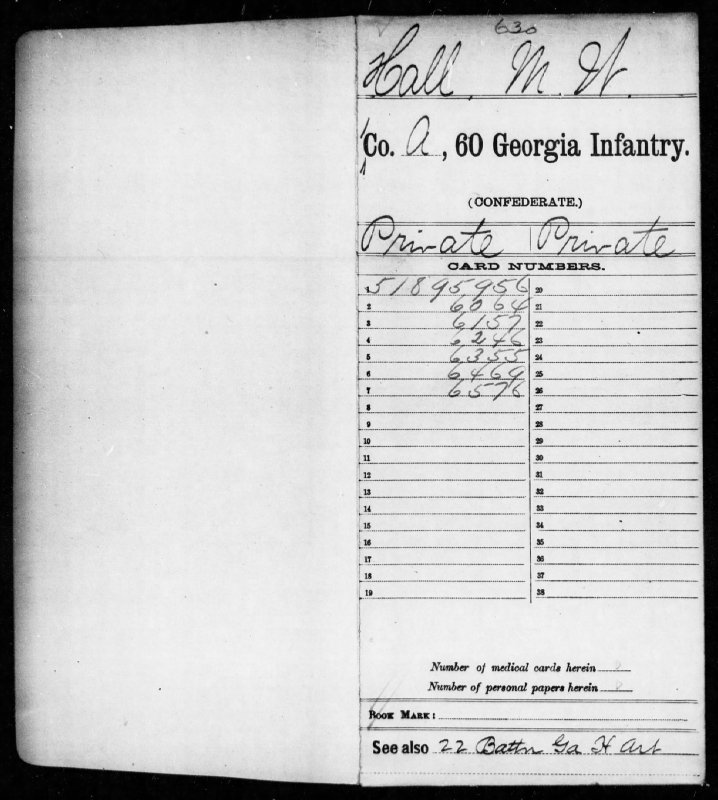 630
Hall, M. W.
Co. A, 60 Georgia Infantry.
(CONFEDERATE.)
Private | Private
CARD NUMBERS.
1 51895956 20
2 6064 21
3 6157 22
4 6246 23
5 6355 24
6 6469 25
7 6576 26
8 27
9 28
10 29
11 30
12 31
13 32
14 33
15 34
16 35
17 36
18 37
19 38
Number of medical cards herein
Number of personal papers herein
BOOK MARK:
See also 22 Battn Ga H Art